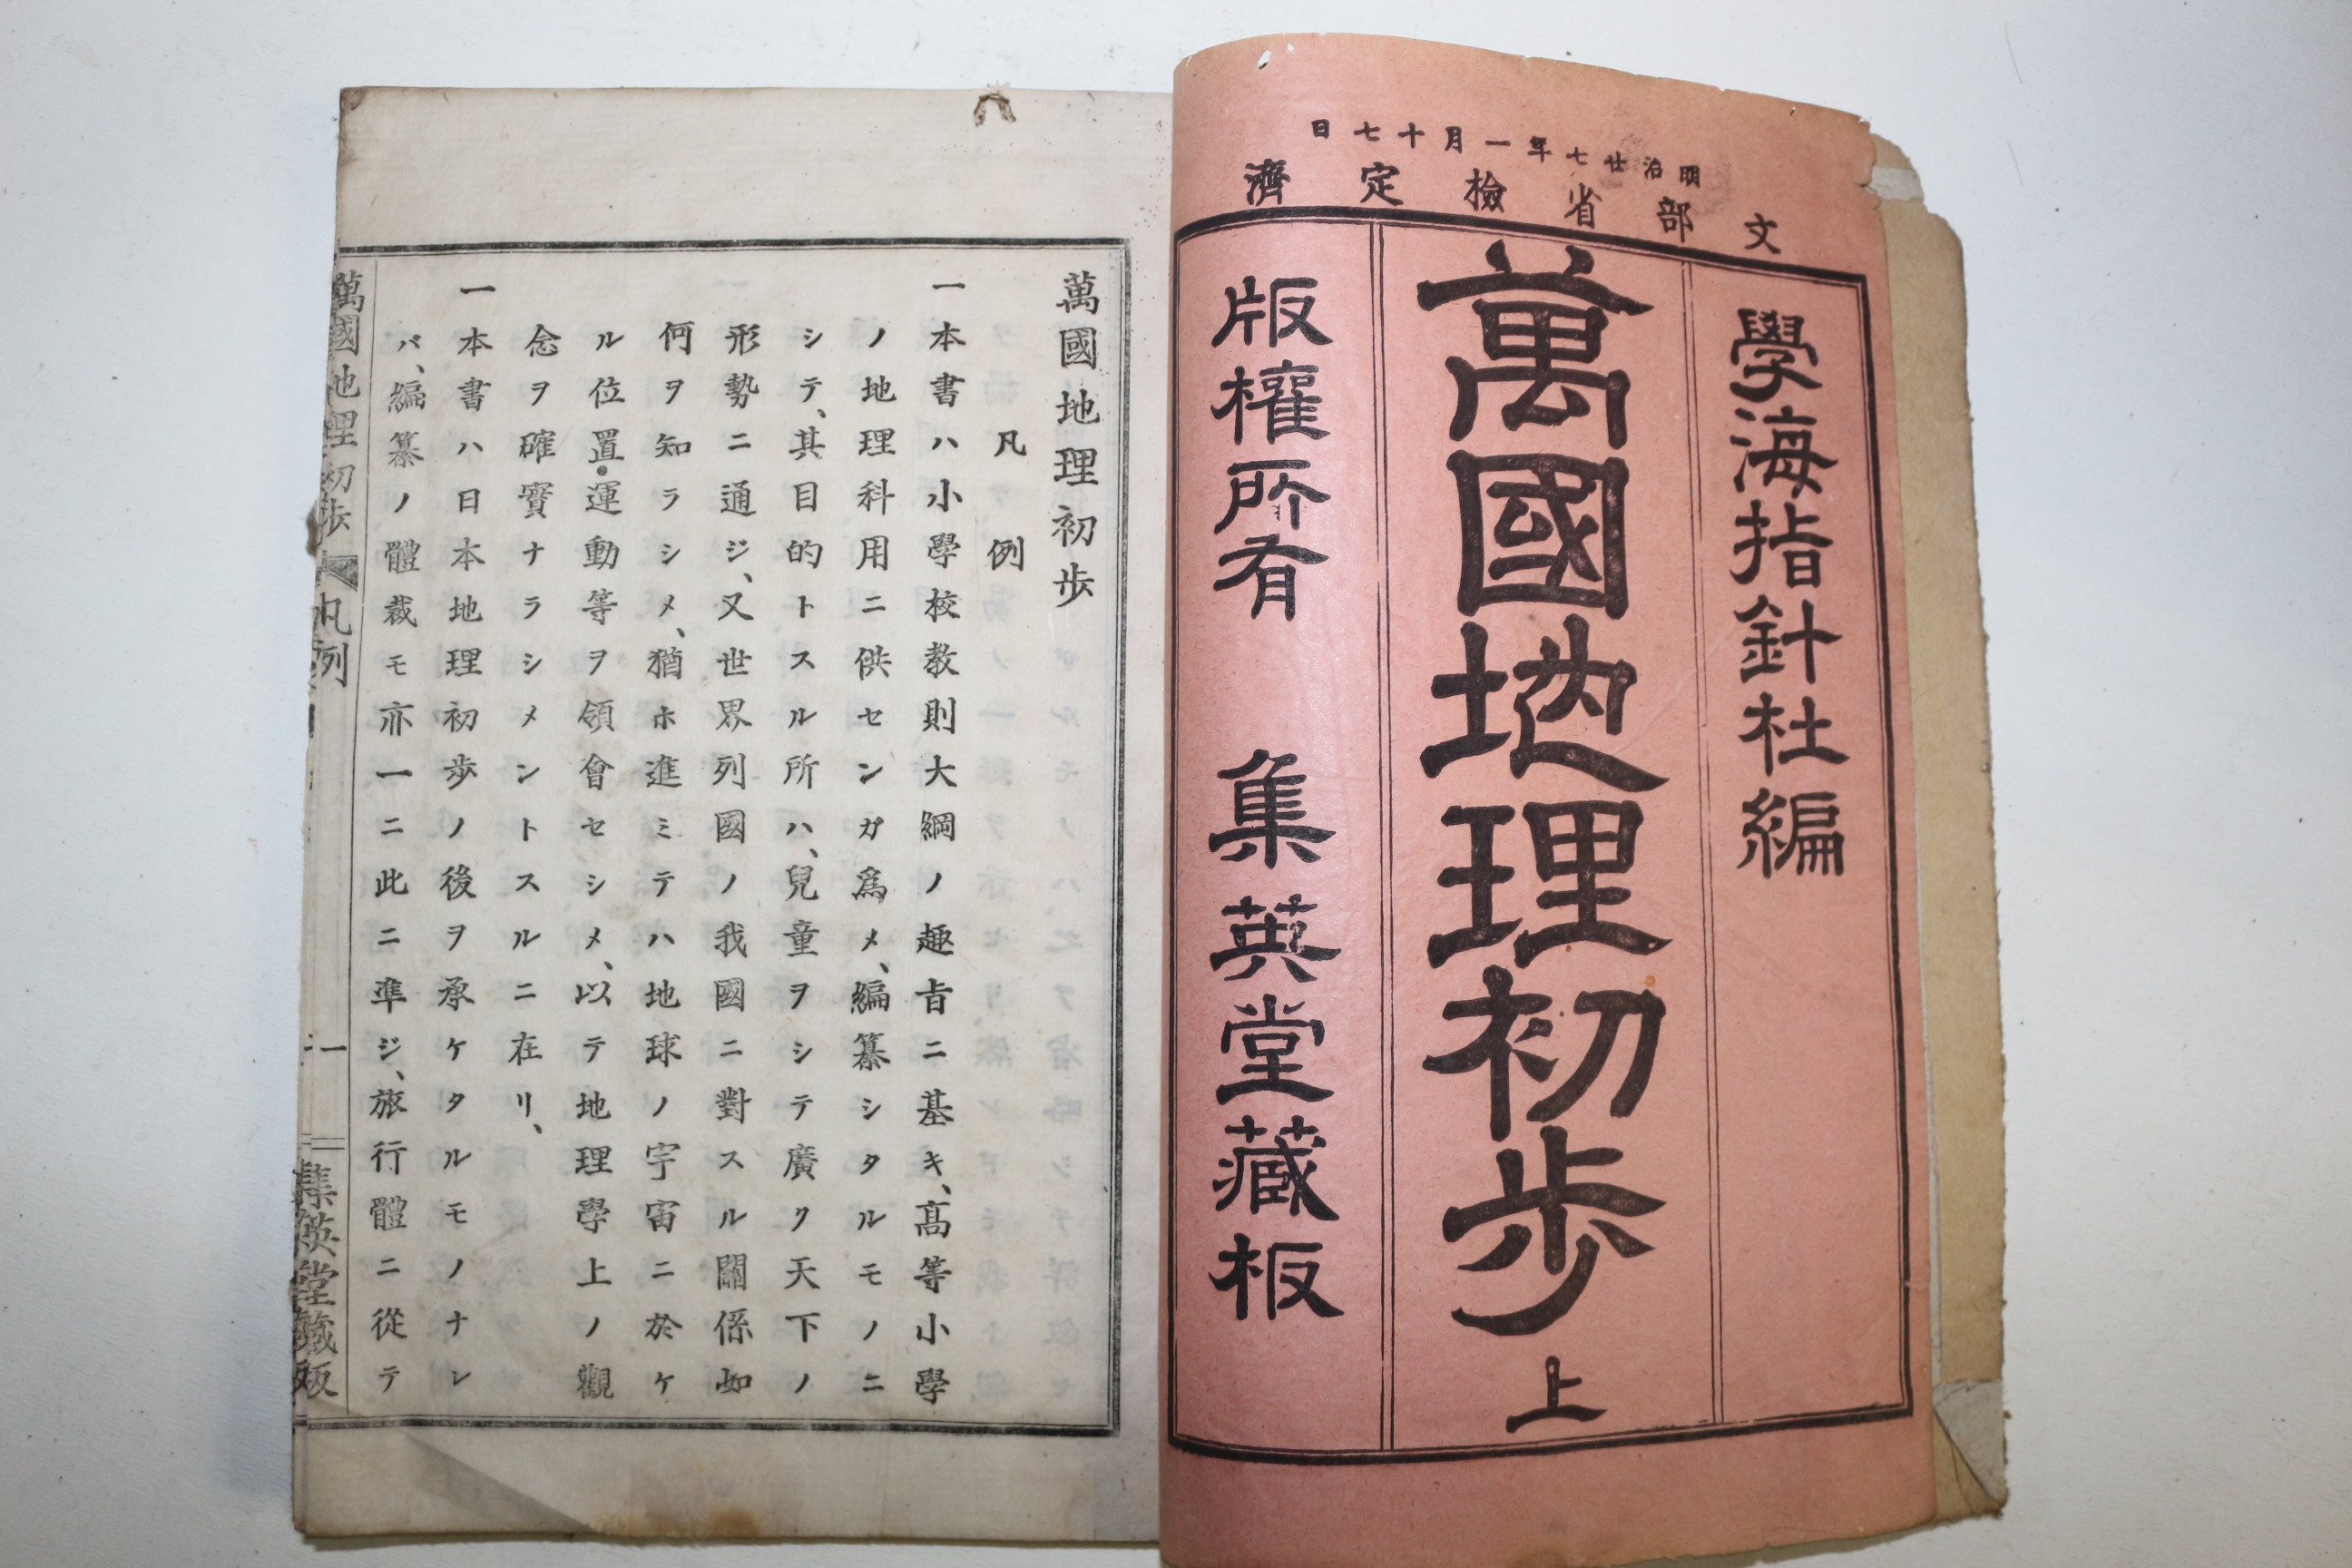 明治廿七年一月十七日
文部省檢定濟
學海指針社編
萬國地理初歩 上
版權所有 集英堂藏板
萬國地理初歩
凡例
一本書ハ小學校教則大綱ノ趣旨ニ基キ、高等小學
ノ地理科用ニ供センガ爲メ、編纂シタルモノニ
シテ、其目的トスル所ハ、兒童ヲシテ廣ク天下ノ
形勢ニ通ジ、又世界列國ノ我國ニ對スル關係如
何ヲ知ラシメ、猶ホ進ミテハ地球ノ宇宙ニ於ケ
ル位置・運動等ヲ領會セシメ、以テ地理學上ノ觀
念ヲ確實ナラシメントスルニ在リ、
一本書ハ日本地理初歩ノ後ヲ承ケタルモノナレ
バ、編纂ノ體裁モ亦一ニ此ニ準ジ、旅行體ニ從テ
萬國地理初歩 凡例 一 集英堂藏版